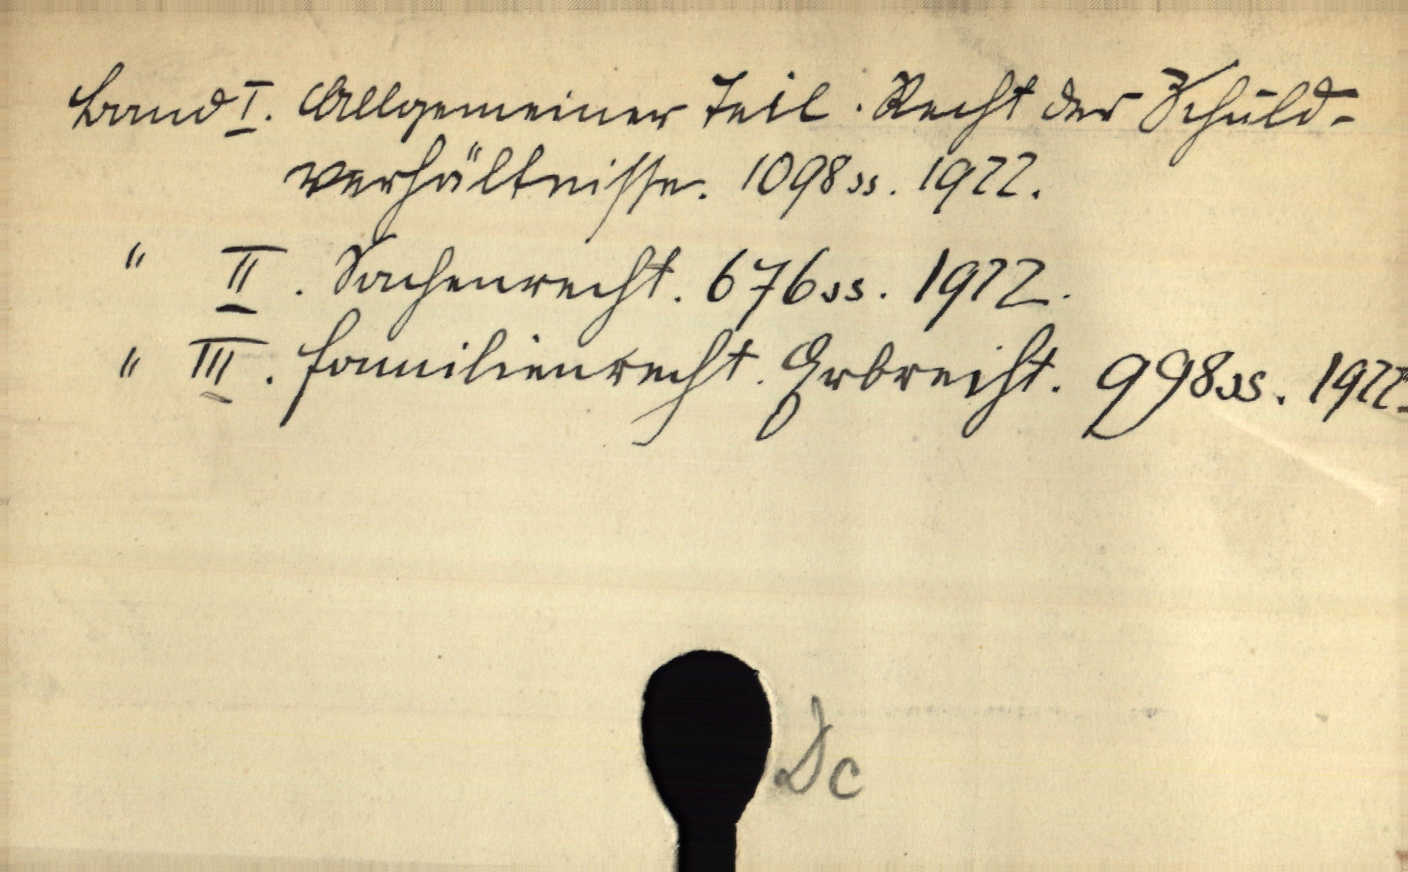 Band I. Allgemeiner Teil. Recht der Schuld-
verhältnisse. 1098 ss. 1922.
" II. Sachenrecht. 676 ss. 1922.
" III. Familienrecht. Erbrecht. 998 ss. 1922.
Dc